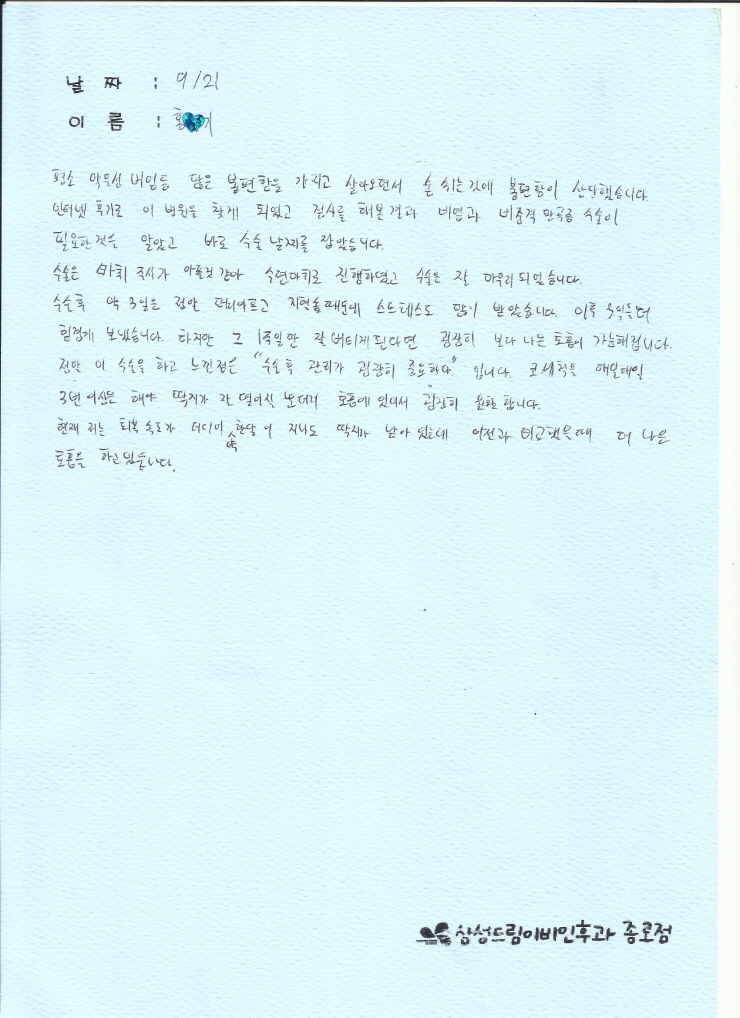 날 짜 : 9/21
이 름 : 홍 기
평소 막힘 버임등 많은 불편함을 가지고 살아오면서 숨 쉬는것에 불편함이 상당했습니다.
인터넷 후기로 이 병원을 찾게 되었고 검사를 해본결과 비염과 비중격 만곡증 수술이
필요한것을 알았고 바로 수술 날짜를 잡았습니다.
수술은 마취 주사가 아플것 같아 수면마취로 진행하였고 수술은 잘 마무리 되었습니다.
수술후 약 3일은 정말 머리아프고 지혈솜때문에 스트레스도 많이 받았습니다. 이후
힘겹게 보냈습니다. 하지만 그 1주일만 잘 버티게된다면 굉장히 보다 나은 호흡이 가능해집니다.
정말 이 수술을 하고 느낀점은 "수술후 관리가 굉장히 중요하다" 입니다. 코세척을 매일매일
3번 이상은 해야 딱지가 잘 떨어질 뿐더러 호흡에 있어서 굉장히 원활 합니다.
현재 저는 회복 속도가 더디어 약 한달 이 지나도 딱지가 남아 있는데 이전과 비교했을때 더 나은
호흡을 하고있습니다.
삼성드림이비인후과 종로점